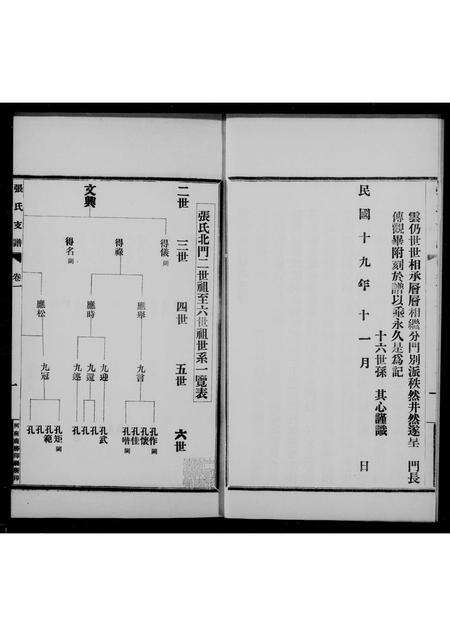 雲仍世世相承層層相繼分門別派秩然井然遂呈 門長
傳觀畢附刻於譜以垂永久是為記
十六世孫 其心謹識
民國十九年十一月 日
張氏北門二世祖至六世祖世系一覽表
二世 三世 四世 五世 六世
文興
得儀 闕
得祿
得名 闕
應舉
應時
應松
九言
九迎
九冠
孔作 闕
孔懷
孔佳
孔武
孔
孔
孔矩 闕
孔範
孔
孔
張氏支譜
卷一
一